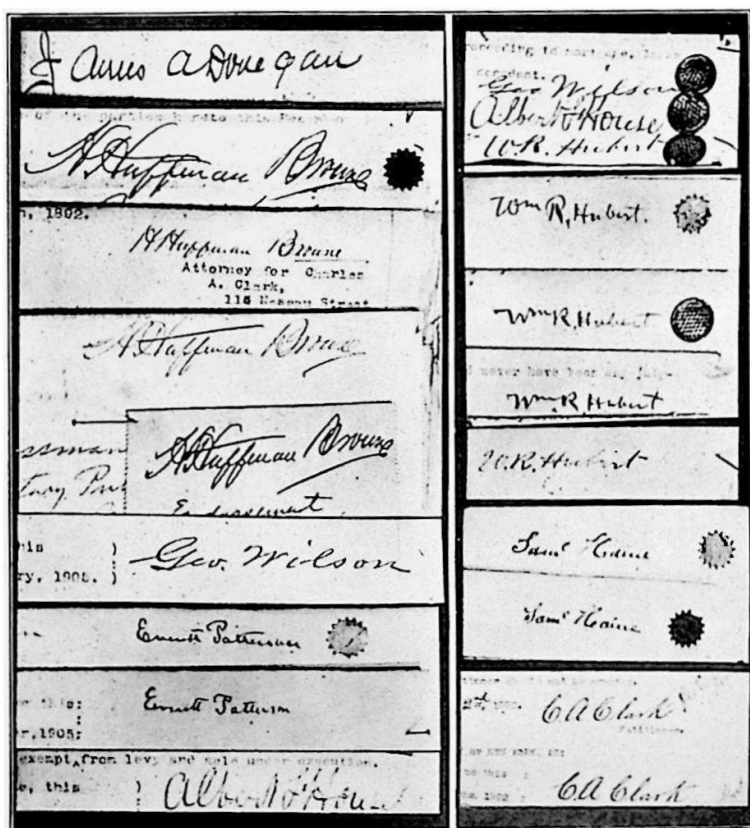 James A Donegan
of the parties hereto this December
H. Huffman Browne
, 1902.
H Huffman Browne
Attorney for Charles
A. Clark,
115 Nassau Street
H. Huffman Browne
ssman
H. Huffman Browne
Endorsement
his )
Geo. Wilson
ry, 1905. )
Everett Patterson
this:
Everett Patterson
:
r, 1905:
exempt from levy and sale under execution.
, this )
Albert O'House
proceeding to mortgage,
Geo Wilson
Albert O'House
W.R. Hubert
Wm R, Hubert.
Wm R, Hubert
never have been any
Wm R, Hubert
W.R. Hubert
Saml Haine
Saml Haine
C A Clark
this :
C A Clark